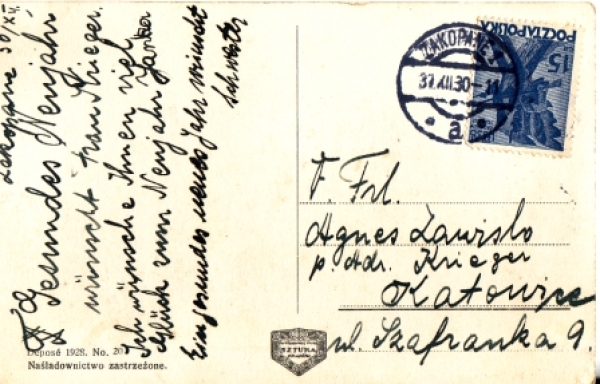 Zakopane 30/XII.
Gesundes Neujahr
wünscht Frau Krieger.
Ich wünsche Ihnen viel
Glück zum Neujahr
Ein gesundes neues Jahr wünscht
Schwester
POCZTA POLSKA
15
ZAKOPANE 2
31.XII.30-11
a
T. Frl.
Agnes Zawislo
p. Adr. Krieger
Katowice
ul. Szafranka 9.
Deposé 1928. No. 20
Naśladownictwo zastrzeżone.
SZTUKA